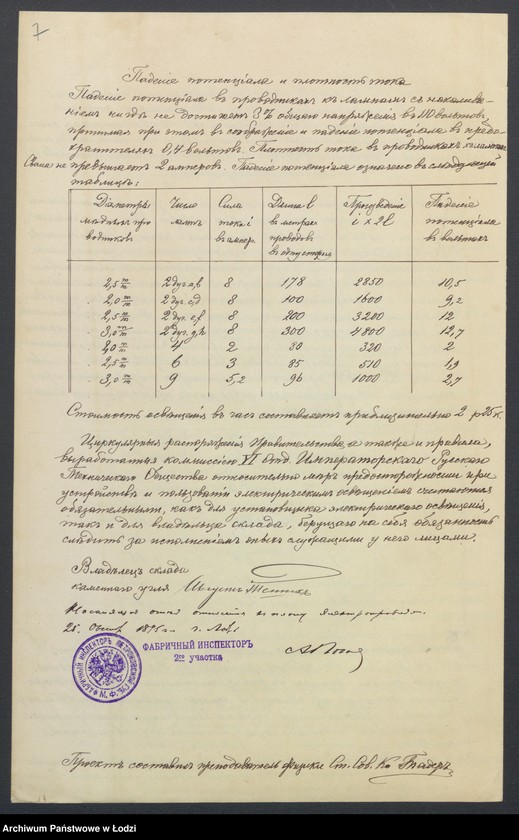 7
Паденіе потенціала и плотность тока
Паденіе потенціала въ проводникахъ къ лампамъ съ накалива-
ніемъ нигдѣ не достигаетъ 3% общаго напряженія въ 110 вольтовъ,
принимая при этомъ въ соображеніе и паденіе потенціала въ предо-
хранителяхъ 0,4 вольтовъ. Плотность тока въ проводникахъ
не превышаетъ 2 амперовъ. Паденіе потенціала означено въ слѣдующей
таблицѣ:
Діаметръ мѣдныхъ про водниковъ | Число лампъ | Сила тока i въ ампер. | Длина l въ метрахъ проводовъ въ одну сторону | Произведеніе i × 2l | Паденіе потенціала въ вольтахъ
2,5 m/m | 2 дуг. a, b | 8 | 178 | 2850 | 10,5
2,0 m/m | 2 дуг. c, d | 8 | 100 | 1600 | 9,2
2,5 m/m | 2 дуг. e, f | 8 | 200 | 3200 | 12
3,0 m/m | 2 дуг. g, h | 8 | 300 | 4800 | 12,7
2,0 m/m | 4 | 2 | 80 | 320 | 2
2,5 m/m | 6 | 3 | 85 | 510 | 1,9
3,0 m/m | 9 | 5,2 | 96 | 1000 | 2,7
Стоимость освѣщенія въ часъ составляетъ приблизительно 2 р 25 к.
Циркулярныя распоряженія Правительства, а также и правила,
выработанныя коммиссіею VI Отд. Императорскаго Русскаго
Техническаго Общества относительно мѣръ предосторожности при
устройствѣ и пользованіи электрическимъ освѣщеніемъ считаются
обязательными, какъ для установщика электрическаго освѣщенія,
такъ и для владѣльца склада, берущаго на себя обязанность
слѣдить за исполненіемъ оныхъ служащими у него лицами.
Владѣлецъ склада
каменнаго угля Августъ
къ плану
25 г. Лодзь
ФАБРИЧНЫЙ ИНСПЕКТОРЪ
2го участка
ФАБРИЧНЫЙ ИНСПЕКТОРЪ ПЕТРОКОВСКОЙ ГУБ. М. Ф.
Проектъ составилъ преподаватель физики Ст. Сов.
Archiwum Państwowe w Łodzi